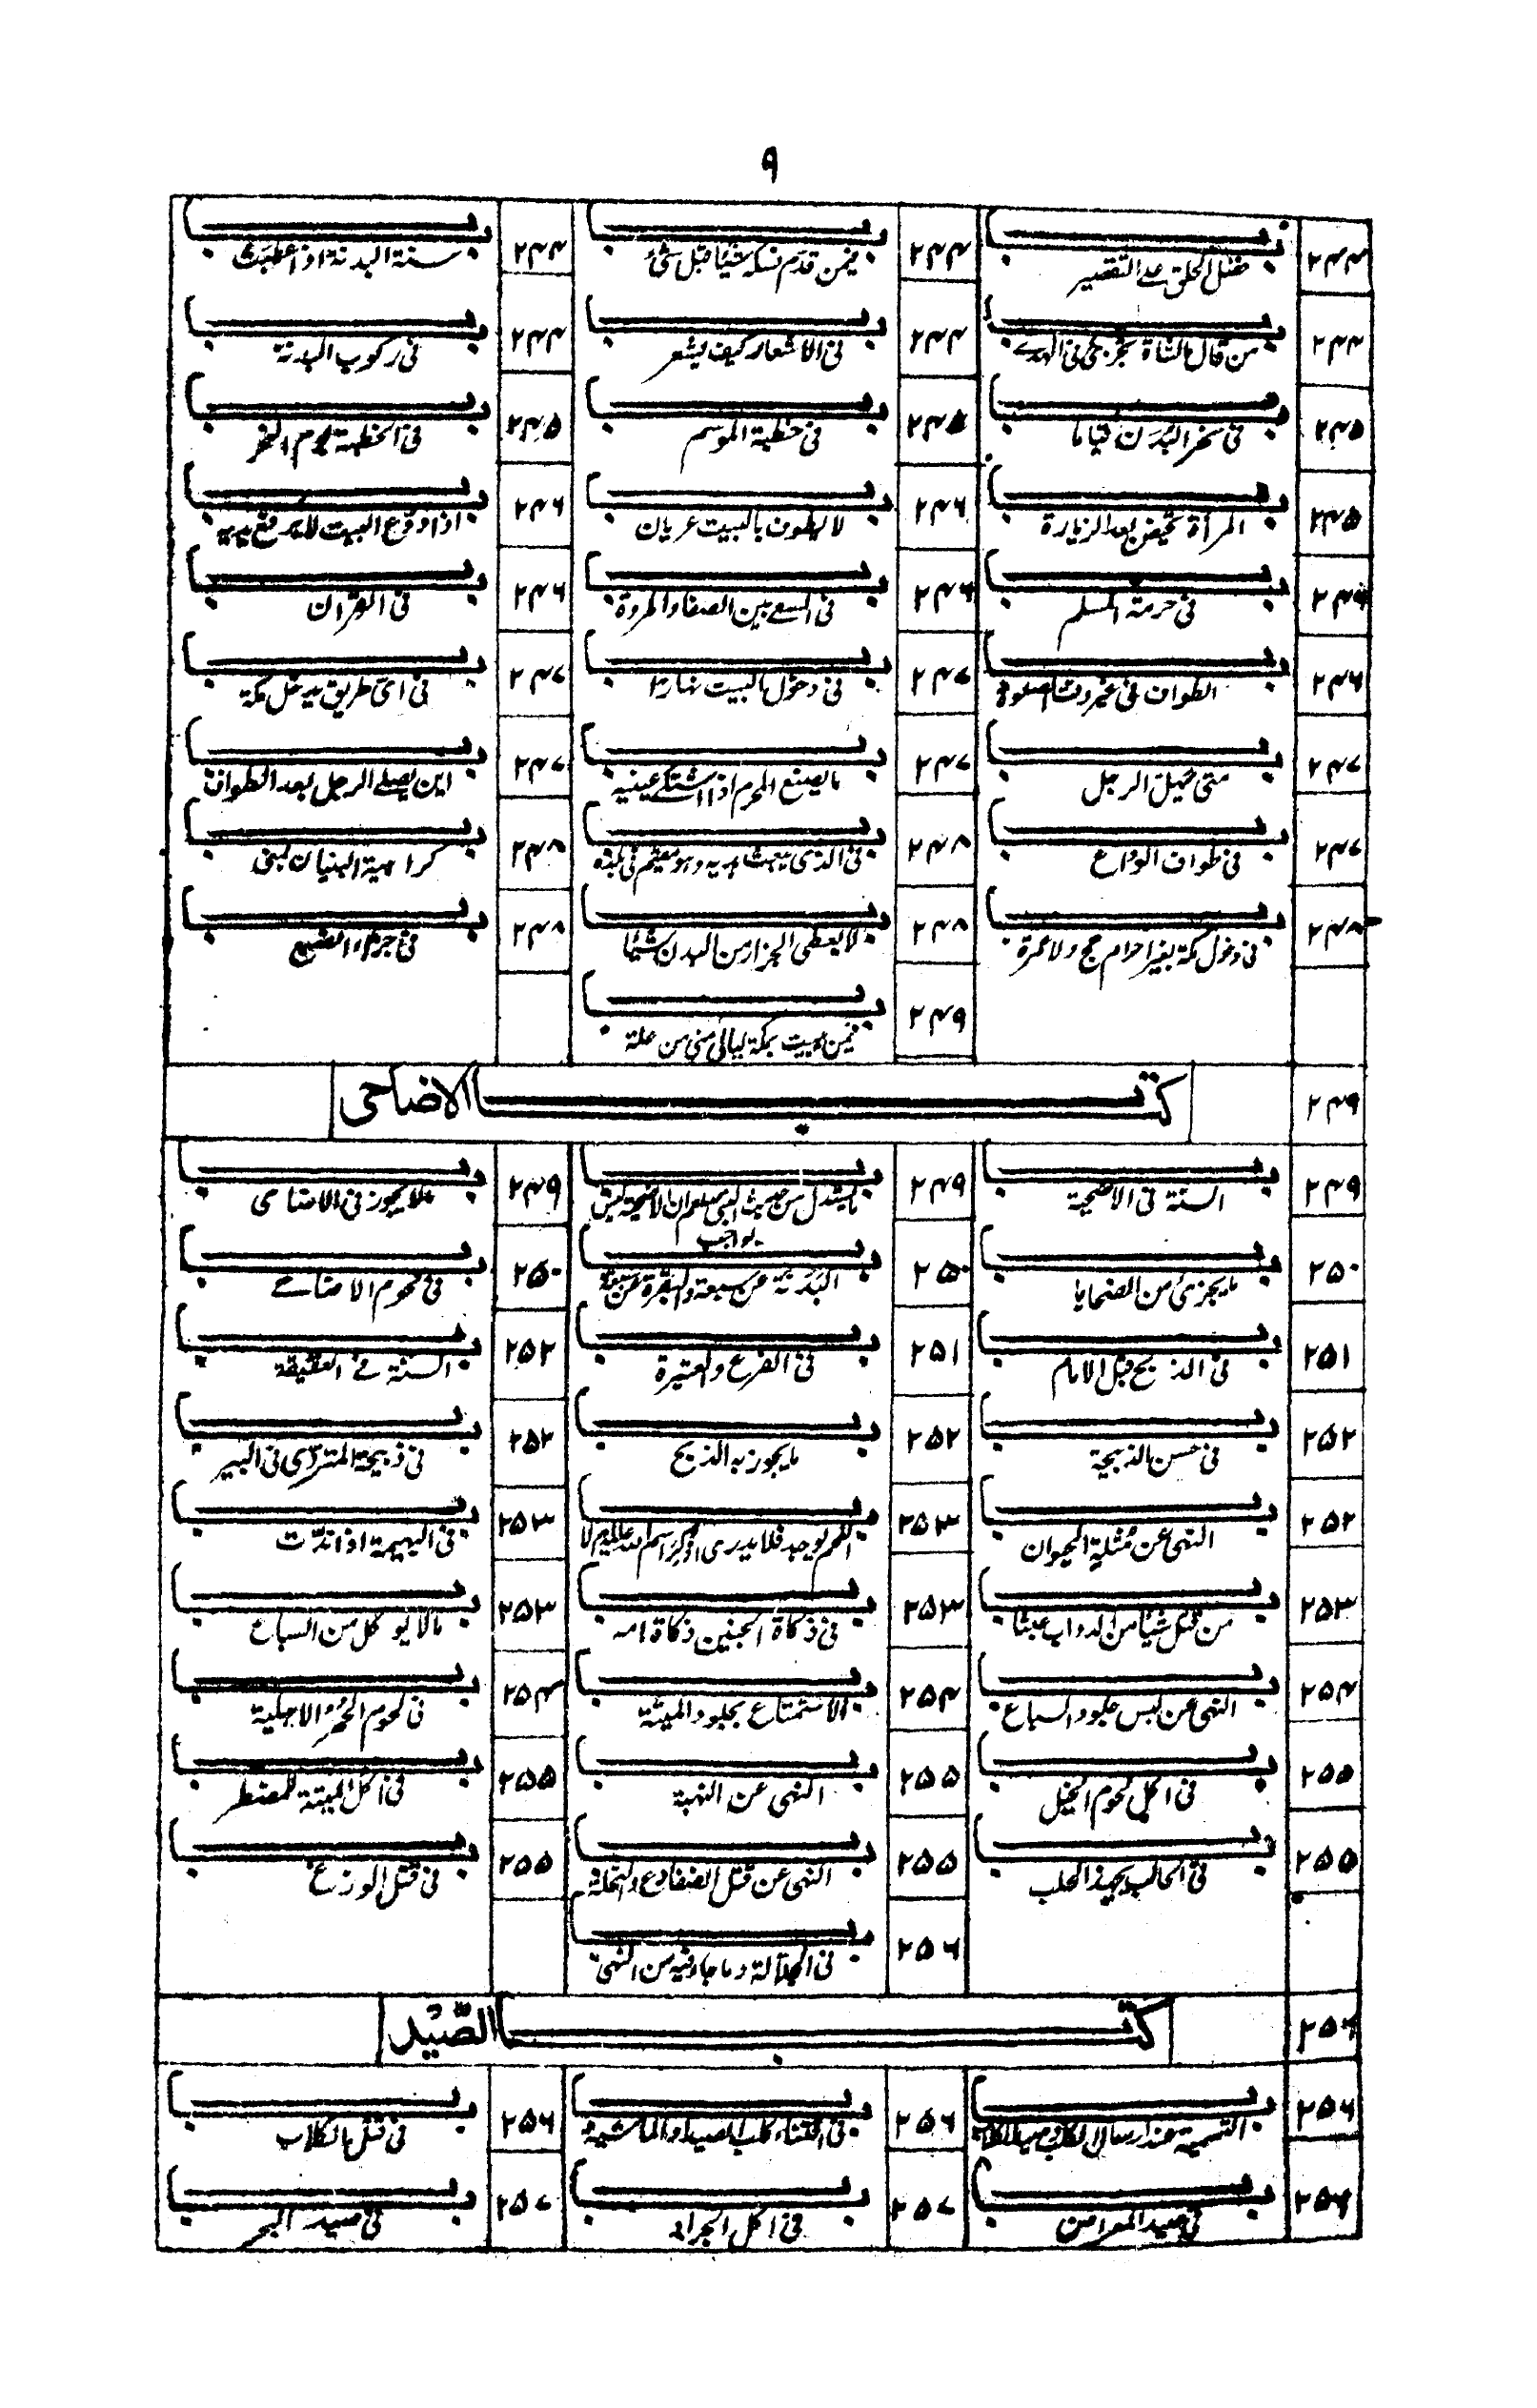 ۹
۲۴۴ باب فضل الحلق علے التقصیر ۲۴۴ باب فیمن قدم نسکہ شیئا قبل شئ ۲۴۴ باب سنة البدنة اذا عطبت
۲۴۴ باب من قال الشاة تجزئ فی الهدے ۲۴۴ باب فی الاشعار کیف یشعر ۲۴۴ باب فی رکوب البدنة
۲۴۵ باب فی نحر البدن قیاما ۲۴۵ باب فی خطبة الموسم ۲۴۵ باب فی الخطبة یوم النحر
۲۴۵ باب المرأة تحیض بعد الزیارة ۲۴۶ باب لا یطوف بالبیت عریان ۲۴۶ باب اذا ودع البیت لا یرفع یدیه
۲۴۶ باب فی حرمة المسلم ۲۴۶ باب فی السعے بین الصفا والمروة ۲۴۶ باب فی القران
۲۴۶ باب الطواف فی غیر وقت صلوة ۲۴۷ باب فی دخول البیت نهارا ۲۴۷ باب فی ای طریق یدخل مکة
۲۴۷ باب متی یهل الرجل ۲۴۷ باب ما یصنع المحرم اذا اشتکے عینیه ۲۴۷ باب این یصلے الرجل بعد الطواف
۲۴۷ باب فی طواف الوداع ۲۴۸ باب فی الذی یبعث هدیه وهو مقیم فی بلده ۲۴۸ باب کراهیة البنیان بمنی
۲۴۸ باب فی دخول مکة بغیر احرام حج ولا عمرة ۲۴۸ باب لا یعطی الجزار من البدن شیئا ۲۴۸ باب فی جزاء الضبع
۲۴۹ باب فیمن یبیت بمکة لیالی منی من علة
۲۴۹ کتاب الاضاحی
۲۴۹ باب السنة فی الاضحیة ۲۴۹ باب ما یستدل من حدیث النبی صلعم ان الاضحیة لیس بواجب ۲۴۹ باب ما لا یجوز فی الاضاحی
۲۵۰ باب ما یجزئ من الضحایا ۲۵۰ باب البدنة عن سبعة والبقرة عن سبعة ۲۵۰ باب فی لحوم الاضاحے
۲۵۱ باب فی الذبح قبل الامام ۲۵۱ باب فی الفرع والعتیرة ۲۵۲ باب السنة فی العقیقة
۲۵۲ باب فی حسن الذبیحة ۲۵۲ باب ما یجوز به الذبح ۲۵۲ باب فی ذبیحة المتردی فی البیر
۲۵۲ باب النهی عن مثلة الحیوان ۲۵۳ باب اللحم یوجد فلا یدری اذکر اسم الله علیه ام لا ۲۵۳ باب فی البهیمة اذا ندت
۲۵۳ باب من قتل شیئا من الدواب عبثا ۲۵۳ باب فی ذکاة الجنین ذکاة امه ۲۵۳ باب ما لا یوکل من السباع
۲۵۴ باب النهی عن لبس جلود السباع ۲۵۴ باب الاستمتاع بجلود المیتة ۲۵۴ باب فی لحوم الحمر الاهلیة
۲۵۵ باب فی اکل لحوم الخیل ۲۵۵ باب النهی عن النهبة ۲۵۵ باب فی اکل المیتة للمضطر
۲۵۵ باب فی الحالب یجهد الحلب ۲۵۵ باب النهی عن قتل الضفادع والنحلة ۲۵۵ باب فی قتل الوزغ
۲۵۶ باب فی الجلالة وما جاء فیه من النهی
۲۵۶ کتاب الصَّیْد
۲۵۶ باب التسمیة عند ارسال الکلب وصید الکلاب ۲۵۶ باب فی اقتناء کلب الصید والماشیة ۲۵۶ باب فی قتل الکلاب
۲۵۶ باب فی صید المعراض ۲۵۷ باب فی اکل الجراد ۲۵۷ باب فی صید البحر